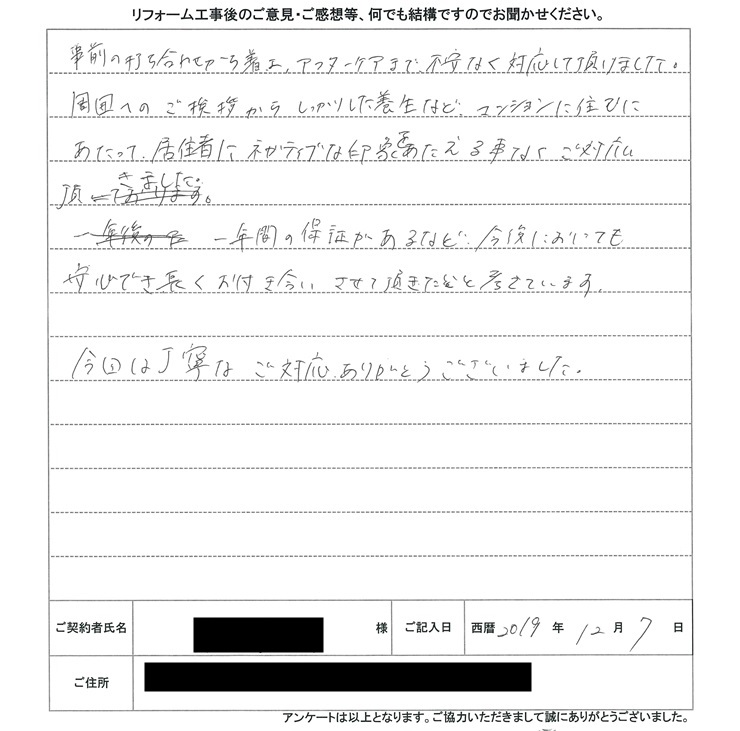 リフォーム工事後のご意見・ご感想等、何でも結構ですのでお聞かせください。
事前の打ち合わせから着工、アフターケアまで不安なく対応して頂けました。
周囲へのご挨拶からしっかりした養生など、マンションに住むに
あたって、居住者にネガティブな印象をあたえる事なくご対応
頂きました。
一年間の保証があるなど、今後においても
安心でき長くお付き合いさせて頂きたいと考えています。
今回は丁寧なご対応ありがとうございました。
ご契約者氏名 様 ご記入日 西暦 2019 年 12 月 7 日
ご住所
アンケートは以上となります。ご協力いただきまして誠にありがとうございました。